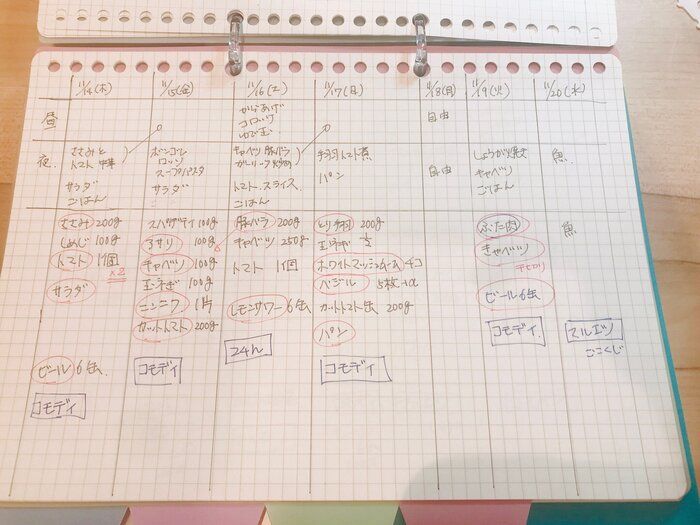 11/14(木)
11/15(金)
11/16(土)
11/17(日)
11/18(月)
11/19(火)
11/20(水)
昼
からあげ
コロッケ
ゆで豆
自由
夜
ささみと
トマト
サラダ
ごはん
ボンゴレ
ロッソ
スープパスタ
サラダ
キャベツ豚バラ
ガーリック炒め
トマトスライス
ごはん
手羽トマト煮
パン
自由
しょうが焼き
キャベツ
ごはん
魚
ささみ 200g
しめじ 100g
トマト 1個
×2
サラダ
ビール 6缶
コモディ
スパゲティ 100g
アサリ 100g
キャベツ 100g
玉ねぎ 100g
ニンニク 1片
カットトマト 200g
コモディ
豚バラ 200g
キャベツ 250g
トマト 1個
レモンサワー 6缶
24h
とり手羽 200g
玉ねぎ
ホワイトマッシュルーム 4コ
バジル 5枚+α
カットトマト缶 200g
パン
コモディ
ぶた肉
キャベツ
ビール 6缶
コモディ
魚
マルエツ